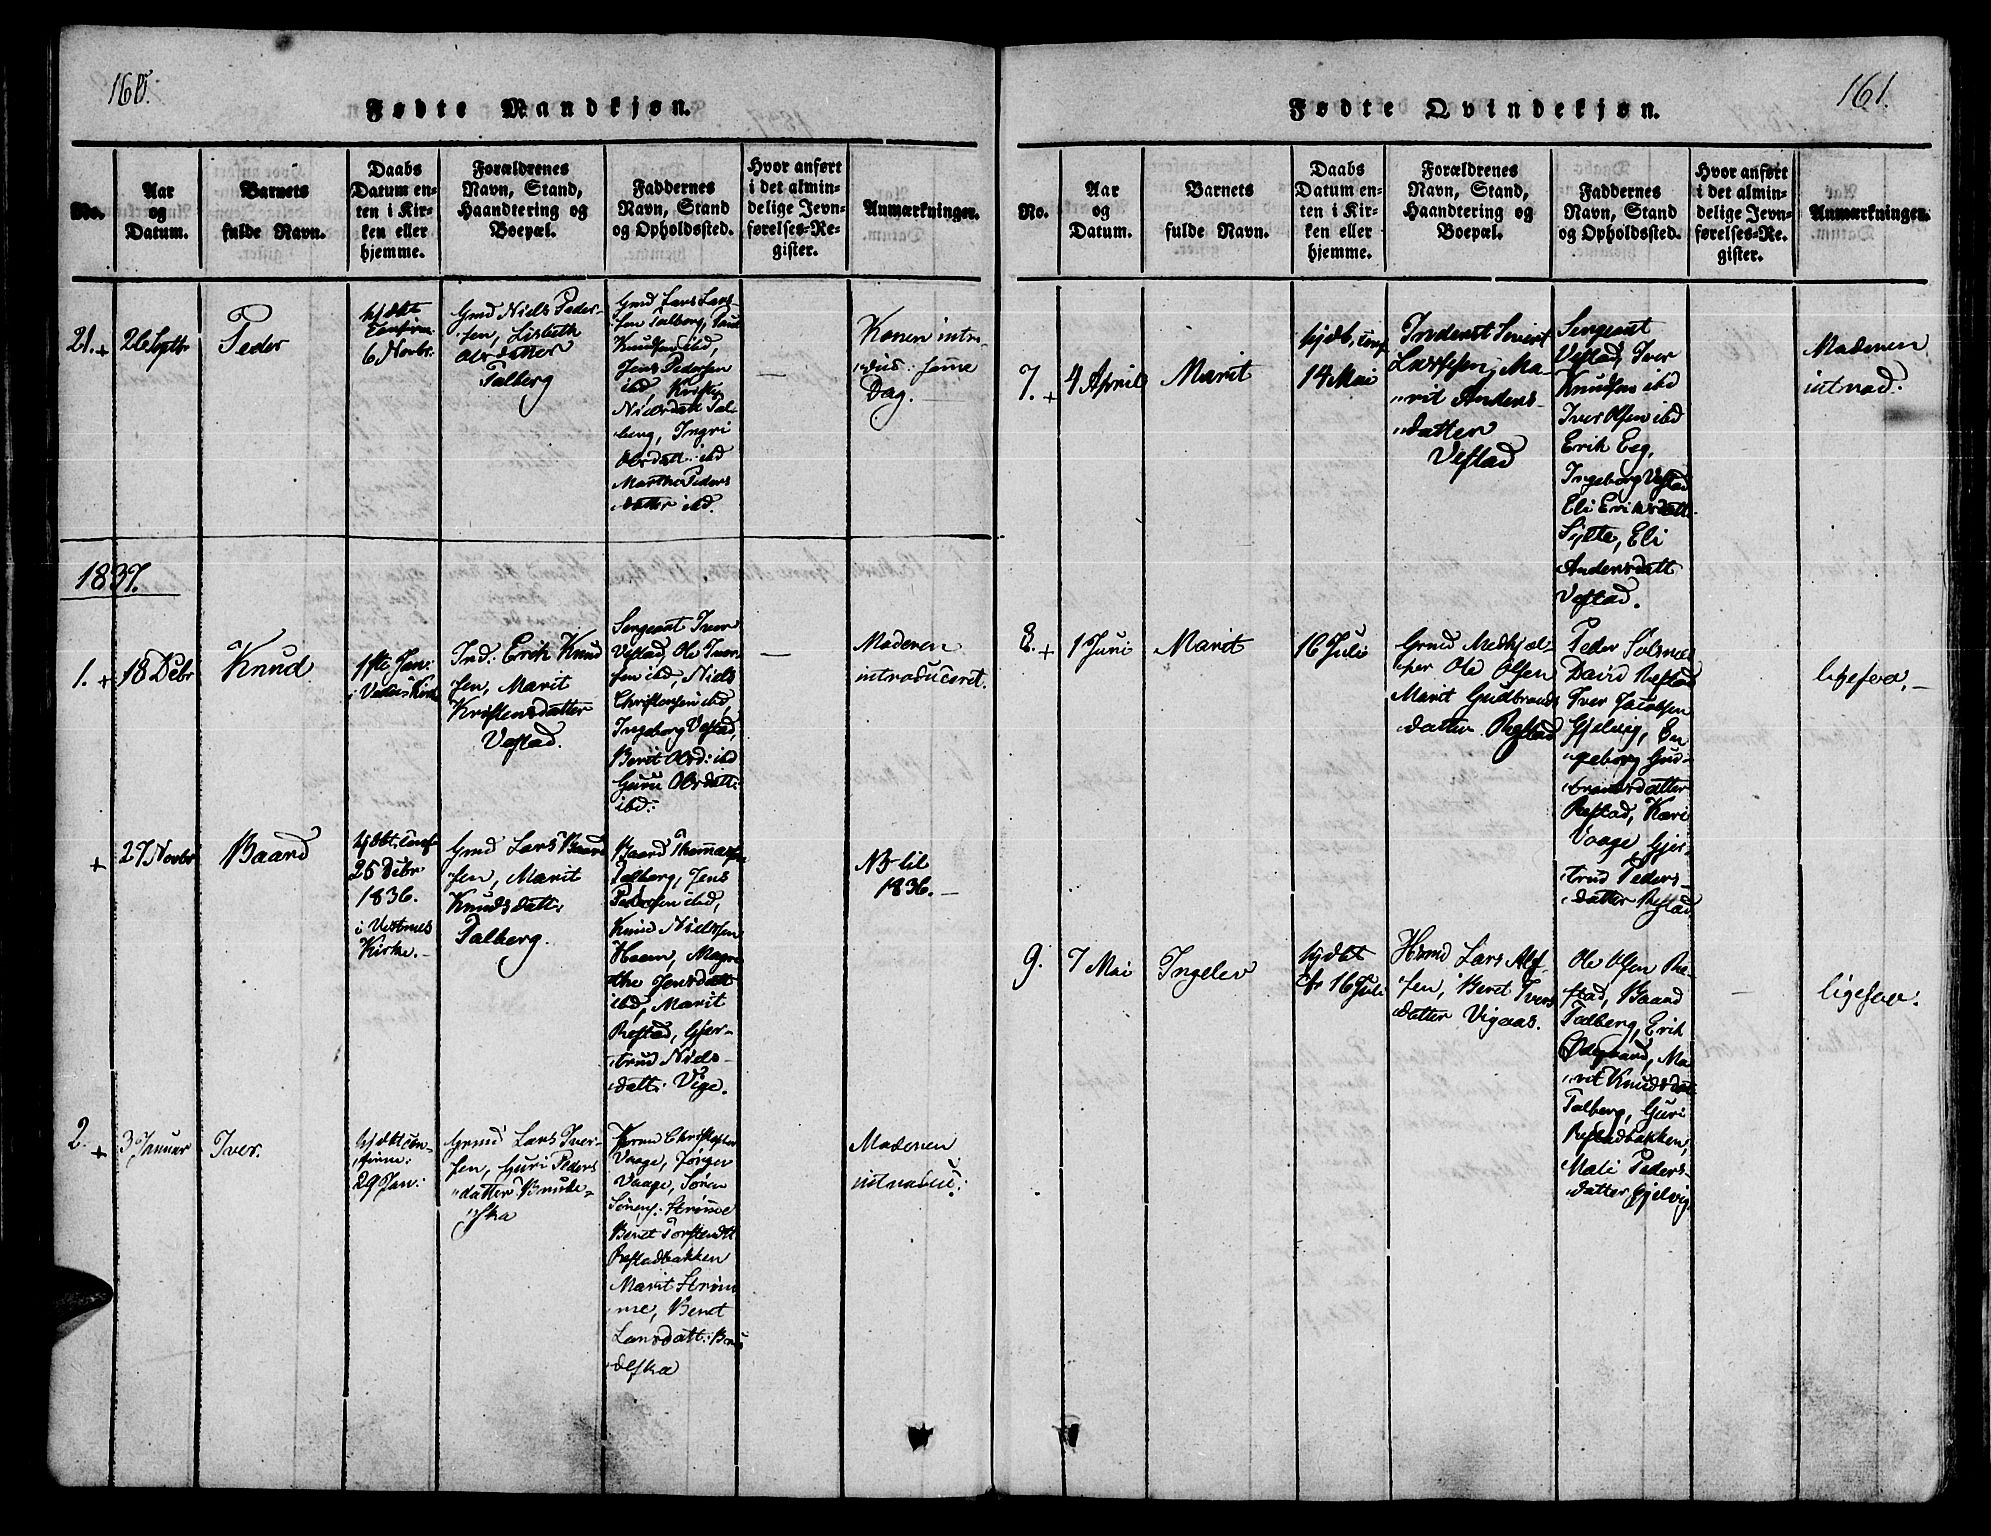 160.
Fødte Mandkjøn.
No.
Aar
og
Datum.
Barnets
fulde Navn.
Daabs
Datum en-
ten i Kir-
ken eller
hjemme.
Forældrenes
Navn, Stand,
Haandtering og
Boepæl.
Faddernes
Navn, Stand
og Opholdssted.
Hvor anført
i det almin-
delige Jevn-
førelses-Re-
gister.
Anmærkninger.
21. +
26 Septbr
Peder
hjdbt
Confirm:
6 Novbr.
Gmd Niels Peder-
sen, Lisbeth
Olsdatter
Talberg
Gmd Lars Lars-
sen Talberg,
Knudsen ibd,
Jens Pedersen
ibd
Nielsdatt Tal-
berg, Ingri
Olsdatt: ibd
Marthe Peders
datter ibd.
—
Konen intro-
duc: samme
Dag.
1837.
1. +
18 Debr
Knud
1ste Jan:
i Kirke
Ind: Erik Knud
sen, Marit
Kristensdatter
Vestad.
Sergeant Iver
Vestad Ole Iver-
sen ibd, Niels
Christensen ibd,
Ingeborg Vestad,
Berit Olsd: ibd
Guru Olsdatt:
ibd:
—
Moderen
introduceret.
+
27 Novbr
Baard
hjdbt, Conf
26 Debr
1836.
i Vestnes
Kirke.
Gmd Lars Baard
sen, Marit
Knudsdatt:
Talberg.
Baard Thomassen
Talberg, Jens
Pedersen ibd,
Knud Nielssen
Haem, Magre
the Jensdatt
ibd, Marit
Restad, Gjer-
trud Niels-
datt: Vige.
NB til
1836.
2. +
3 Januar
Iver.
hjdbt con-
firm:
29 Jan:
Gmd Lars Iver-
sen, Guri Peders
datter Brude-
ska
Christopher
Vaage, Jørgen
Vaage, Søren
Sørens: Strømme
Beret Torstendt
Restadbakken
Marit Strøm
me, Beret
Larsdatt: Bru
deska
Moderen
introduc:
161.
Fødte Qvindekjøn.
No.
Aar
og
Datum.
Barnets
fulde Navn.
Daabs
Datum en-
ten i Kir-
ken eller
hjemme.
Forældrenes
Navn, Stand,
Haandtering og
Boepæl.
Faddernes
Navn, Stand
og Opholdssted.
Hvor anført
i det almin-
delige Jevn-
førelses-Re-
gister.
Anmærkninger.
7. +
4 April
Marit
hjdb, conf
14 Mai
Inderst Sivert
Larssen, Ma-
rit Anders-
datter
Vestad
Sergeant
Vestad, Iver
Knudsen ibd
Iver Olsen ibd
Erik Eeg,
Ingeborg Vestad
Eli Eriksdatt:
Sylte, Eli
Andersdatt
Vestad.
Moderen
introd:
8. +
1 Juni
Marit
16 Juli
Gmd Medhjæl-
per Ole Olsen
Marit Gudbrands
datter Restad
Peder Solsnæs
David Restad
Iver Jacobsen
Gjelvig, En
geborg Gud-
brandsdatter
Restad, Kari
Vaage, Gjer-
trud Peders-
datter Restad
ligesaa.
9.
7 Mai
Ingelev
hjdbt
16 Juli
Hsmd Lars Alf-
sen, Beret Ivers
datter Vigaas.
Ole Olsen Re-
stad, Baard
Talberg, Erik
Ødegaard, Ma
rit Knudsdatt
Talberg, Guri
Restadbakken,
Mali Peders-
datter Gjelvig
—
ligesaa.